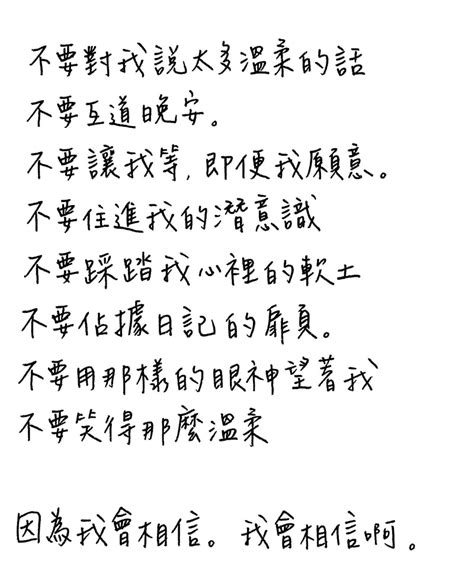 不要對我說太多溫柔的話
不要互道晚安。
不要讓我等,即便我願意。
不要住進我的潛意識
不要踩踏我心裡的軟土
不要佔據日記的扉頁。
不要用那樣的眼神望著我
不要笑得那麼溫柔
因為我會相信。我會相信啊。